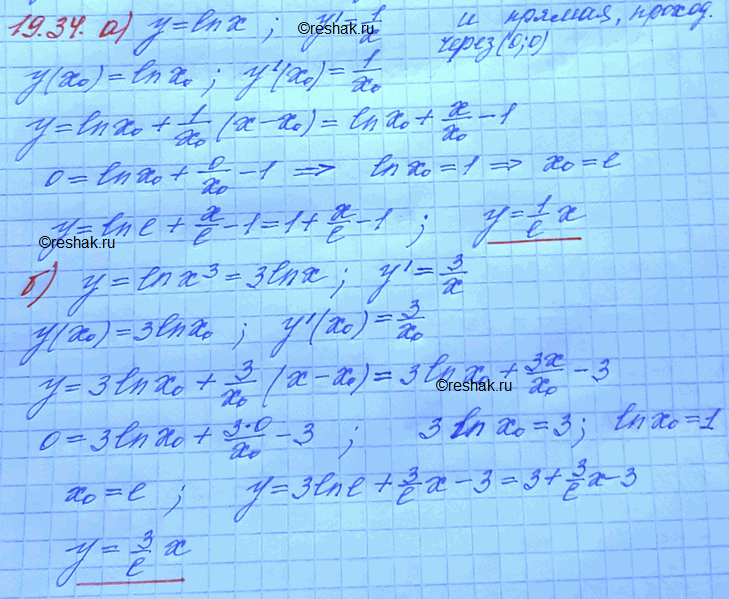 19.34. а) y=lnx ; y'=1/x и прямая, проход.
через (0;0)
©reshak.ru
y(x₀)=lnx₀ ; y'(x₀)=1/x₀
y=lnx₀+1/x₀(x-x₀)=lnx₀+x/x₀-1
0=lnx₀+0/x₀-1 ⇒ lnx₀=1 ⇒ x₀=e
y=lne+x/e-1=1+x/e-1 ; y=1/e x
©reshak.ru
б) y=lnx³=3lnx ; y'=3/x
y(x₀)=3lnx₀ ; y'(x₀)=3/x₀
y=3lnx₀+3/x₀(x-x₀)=3lnx₀+3x/x₀-3
©reshak.ru
0=3lnx₀+3·0/x₀-3 ; 3lnx₀=3; lnx₀=1
x₀=e ; y=3lne+3/e x-3=3+3/e x-3
y=3/e x